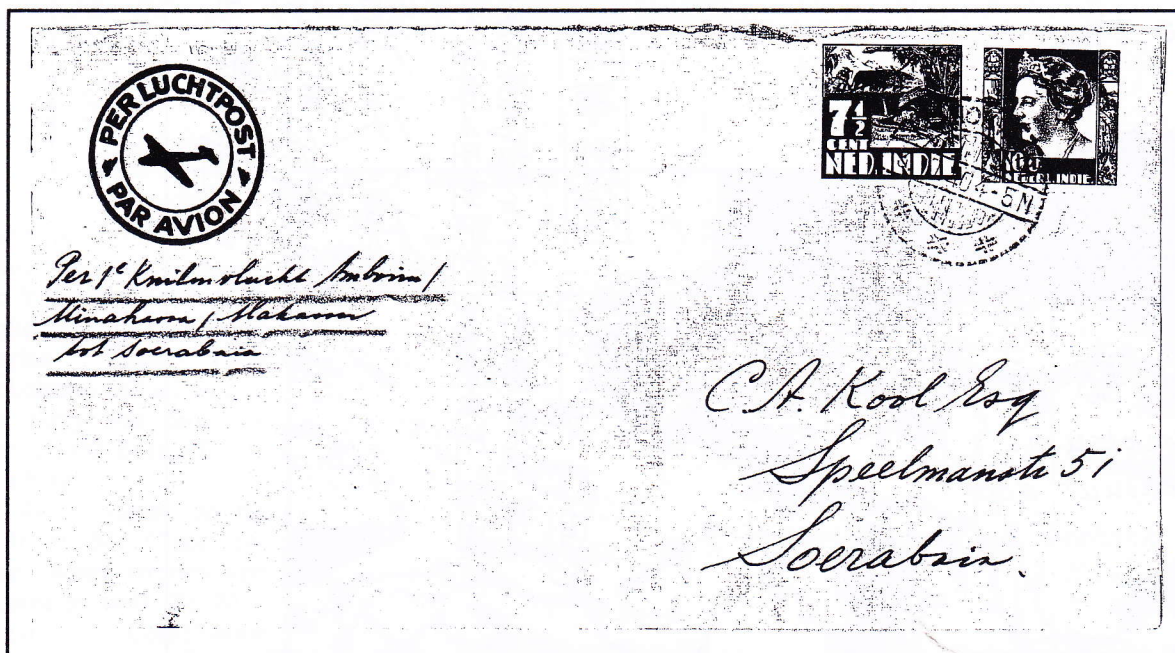 PER LUCHTPOST
PAR AVION
7½
CENT
NED. INDIE
NEDERL. INDIE
4-5N
Per 1e Knilmvlucht Amboina/
Minahassa / Makasser
tot Soerabaia
C. A. Kool Esq
Speelmanstr 51
Soerabaia.